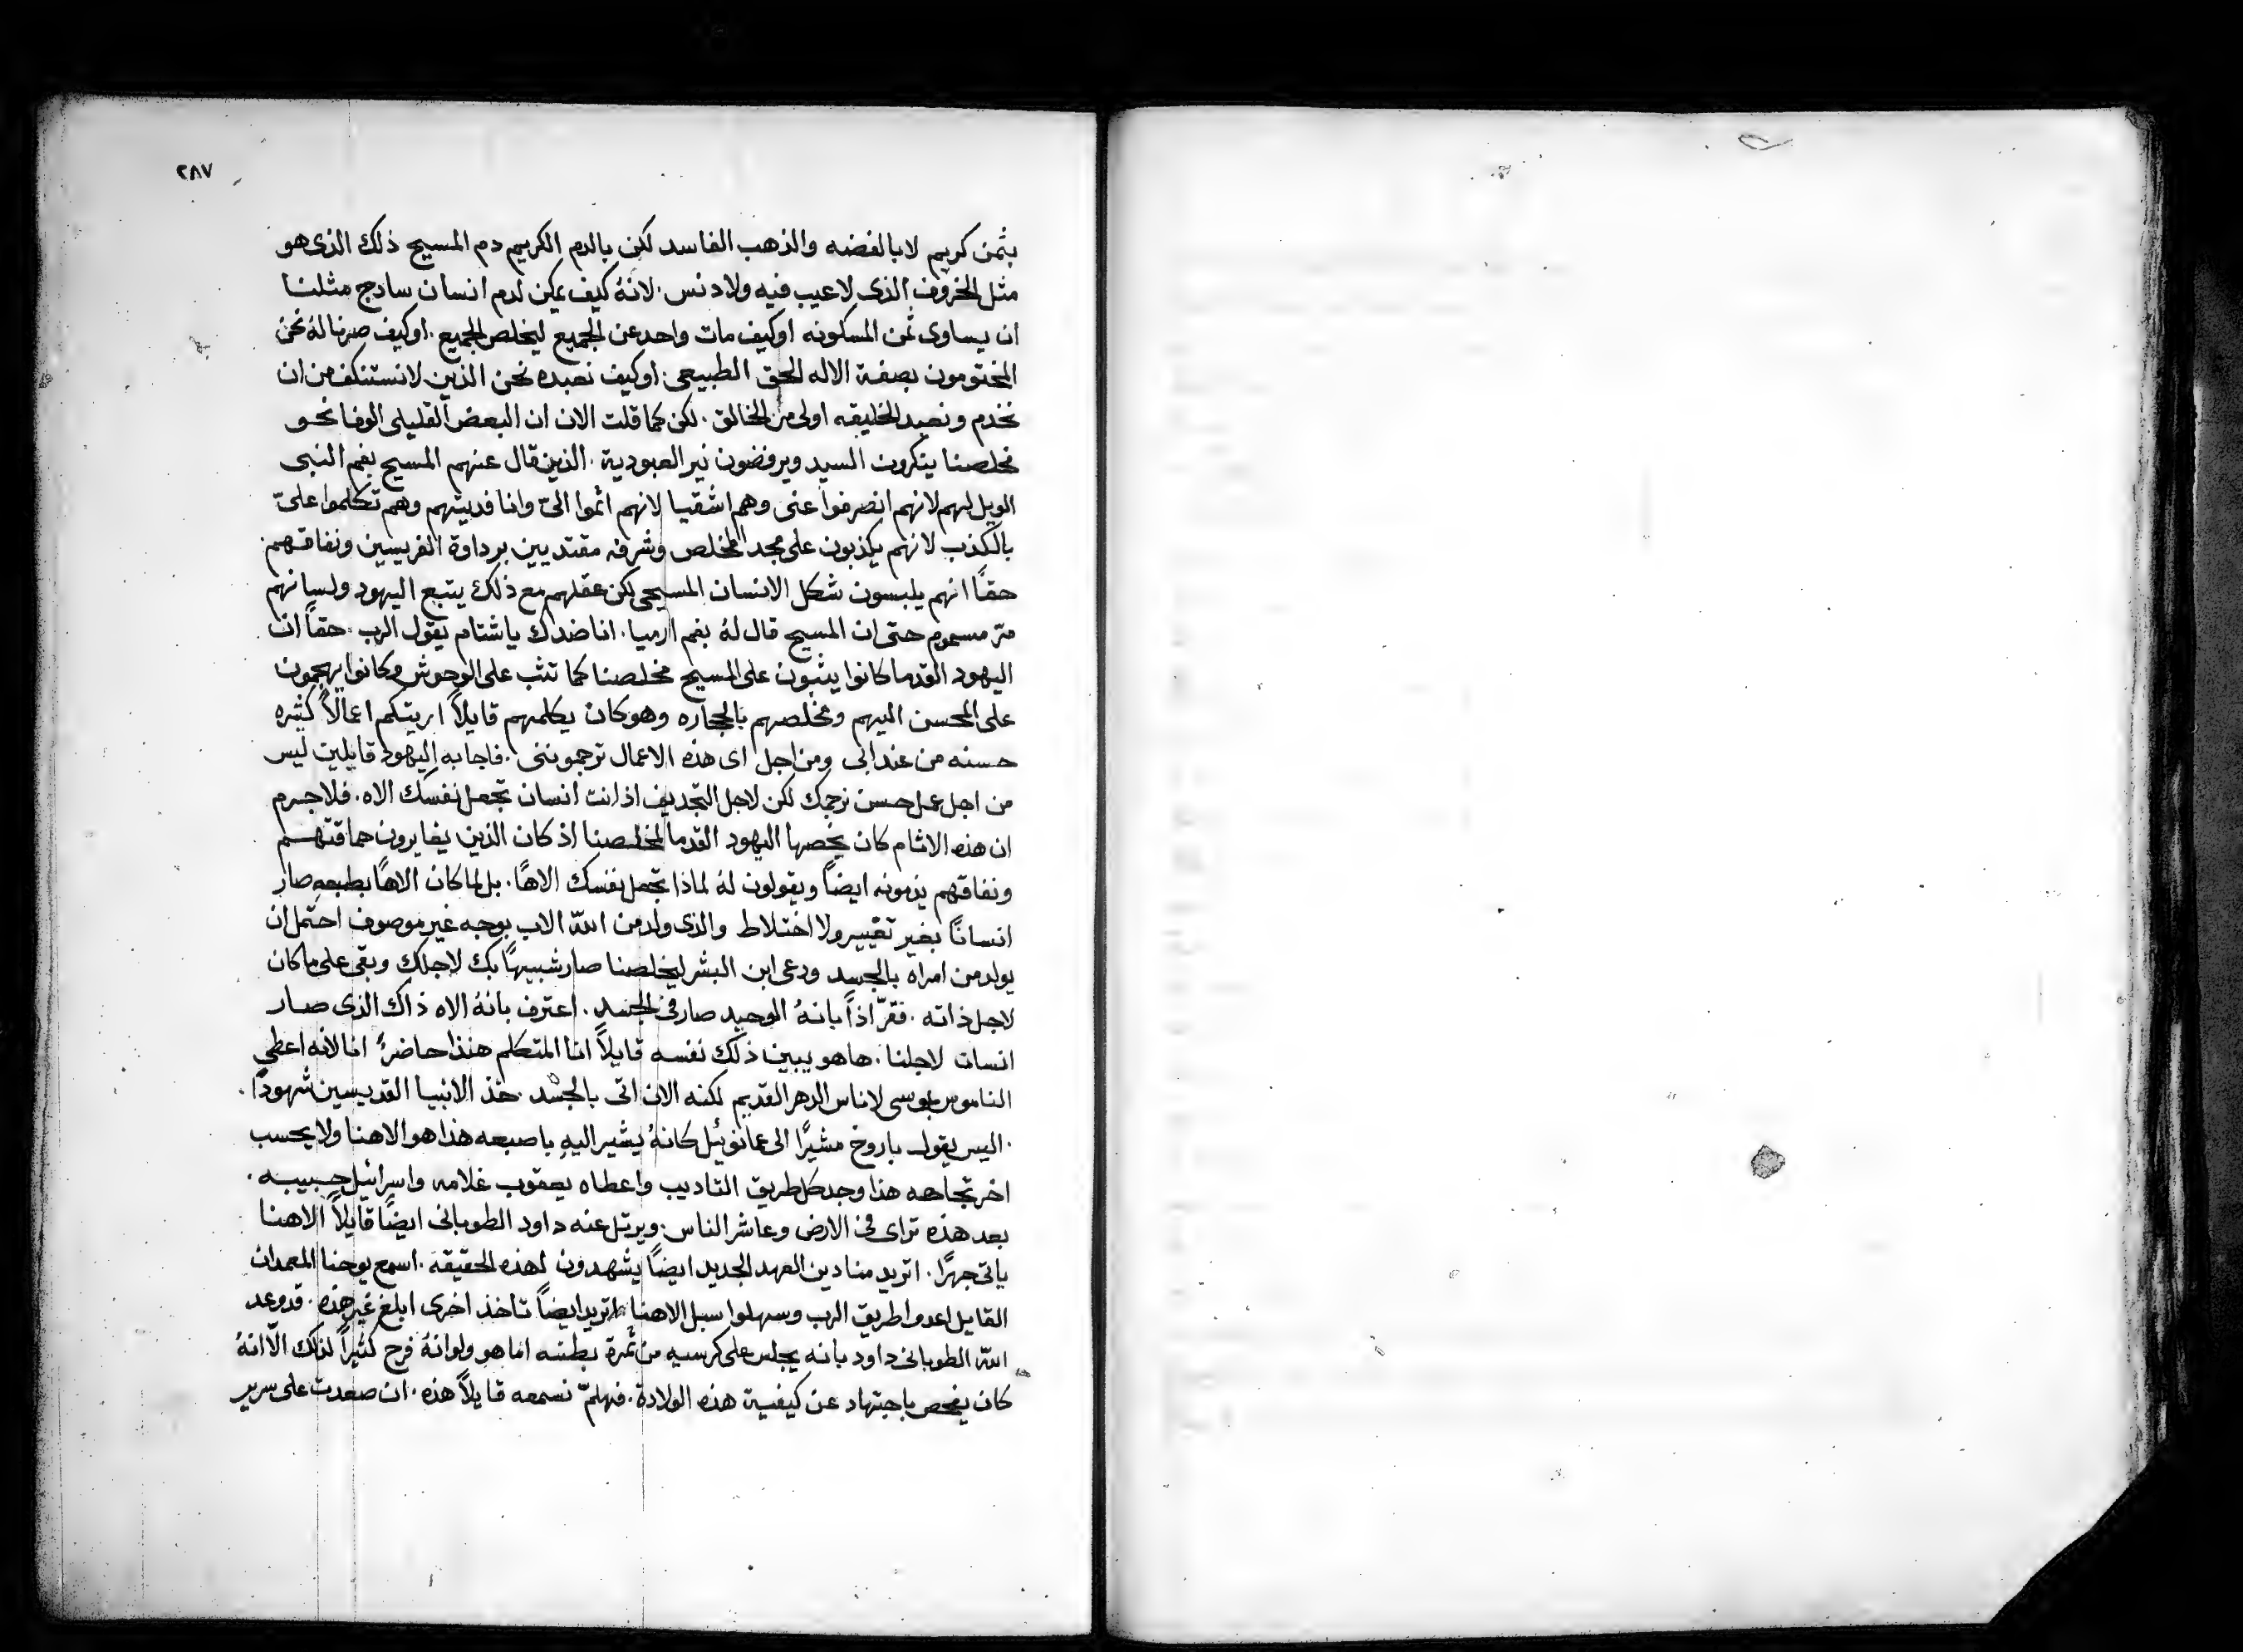 ٢٨٧
بثمن كريم لا بالفضه والذهب الفاسد لكن بالدم الكريم دم المسيح ذلك الذى هو
مثل الخروف الذى لا عيب فيه ولا دنس. لانهُ كيف يمكن لدم انسان سادج مثلنا
ان يساوى ثمن المسكونه اوكيف مات واحد عن الجميع ليخلص الجميع. اوكيف صرنا لهُ نحن
المختومون بصفة الاله الحق الطبيعى. اوكيف نعبده نحن الذين لا نستنكف من ان
نخدم ونعبد الخليقه اولى من الخالق. لكن كما قلت الان ان البعض القليلى الوفا نحو
مخلصنا ينكرون السيد ويرفضون نير العبودية. الذين قال عنهم المسيح بفم النبى
الويل لهم لانهم انصرفوا عنى وهم اشقيا لانهم اثموا الىّ وانا فديتهم وهم تكلموا علىّ
بالكذب لانهم يكذبون على مجد المخلص وشرفه مقتديين برداوة الفريسين ونفاقهم.
حقًا انهم يلبسون شكل الانسان المسيحى لكن عقلهم مع ذلك يتبع اليهود ولسانهم
مرّ مسموم حتى ان المسيح قال لهُ بفم ارميا. انا ضدك يا شتام يقول الرب. حقًا ان
اليهود القدما كانوا يثبون على المسيح مخلصنا كما تثب على الوحوش وكانوا يهجمون
على المحسن اليهم ومخلصهم بالحجاره وهو كان يكلمهم قايلاً اريتكم اعمالاً كثيره
حسنه من عند ابى ومن اجل اى هذه الاعمال ترجموننى. فاجابه اليهود قايلين ليس
من اجل عمل حسن نرجمك لكن لاجل التجديف اذ انت انسان تجعل نفسك الاه. فلا جرم
ان هذه الاثام كان يخصها اليهود القدما لمخلصنا اذ كان الذين يغايرون حماقتهم
ونفاقهم يذمونه ايضاً ويقولون لهُ لماذا تجعل نفسك الاهًا. بل لما كان الاهًا بطبعهِ صار
انسانًا بغير تغيير ولا اختلاط والذى ولد من اللّه الاب بوجه غير موصوف احتمل ان
يولد من امراه بالجسد ودعى ابن البشر ليخلصنا صار شبيهًا بك لاجلك وبقى على ما كان
لاجل ذاته. فقرّ اذاً بانهُ الوحيد صار فى الجسد. اعترف بانهُ الاه ذاك الذى صار
انسان لاجلنا. ها هو يبين ذلك نفسه قايلاً انا المتكلم هنذا حاضرٌ انا لانه اعطى
الناموس بموسى لاناس الدهر القديم لكنه الان اتى بالجسد. خذ الانبيا القديسين شهودًا.
اليس يقول باروخ مشيرًا الى عمانوئيل كانهُ يشير اليهِ باصبعه هذا هو الاهنا ولا يحسب
اخر تجاهه هذا وجد كل طريق التاديب واعطاه يعقوب غلامه واسرائيل حبيبه.
بعد هذه تراى فى الارض وعاشر الناس. ويرتل عنه داود الطوبانى ايضًا قايلاً الاهنا
ياتى جهرًا. اتريد منادين العهد الجديد ايضاً يشهدون لهذه الحقيقه. اسمع يوحنا المعمدان
القايل اعدوا طريق الرب وسهلوا سبل الاهنا اتريد ايضاً تاخذ اخرى ابلغ غير هذه. قد وعد
اللّه الطوبانى داود بانه يجلس على كرسيه من ثمرة بطنه اما هو ولو انهُ فرح كثيرًا لذلك الّا انهُ
كان يفحص باجتهاد عن كيفية هذه الولادة. فهلمّ نسمعه قايلاً هذه. ان صعدت على سرير